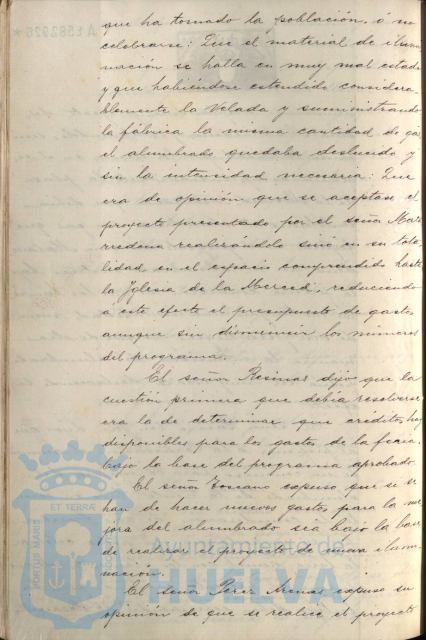 que ha tomado la población, ó no
celebrarse: Que el material de ilumi
nación se halla en muy mal estado
y que habiéndose estendido considera
blemente la Velada y suministrando
la fábrica la misma cantidad de gas
el alumbrado quedaba deslucido y
sin la intensidad necesaria: Que
era de opinión que se aceptase el
proyecto presentado por el señor
realizándolo sinó en su tota
lidad en el espacio comprendido hasta
la Iglesia de la Merced, reduciendo
a este efecto el presupuesto de gastos
aunque sin disminuir los números
del programa.
El señor Resinas dijo que la
cuestión primera que debía resolverse
era la de determinar que créditos hay
disponibles para los gastos de la feria,
bajo la base del programa aprobado.
El señor Toscano expuso que si se
han de hacer nuevos gastos para la me
jora del alumbrado sea bajo la base
de realizar el proyecto de nueva ilumi
nación.
El señor Perez Arenas expuso su
opinión de que se realice el proyecto
A1582926*
PORTUS MARIS ET TERRAE
Ayuntamiento de
HUELVA